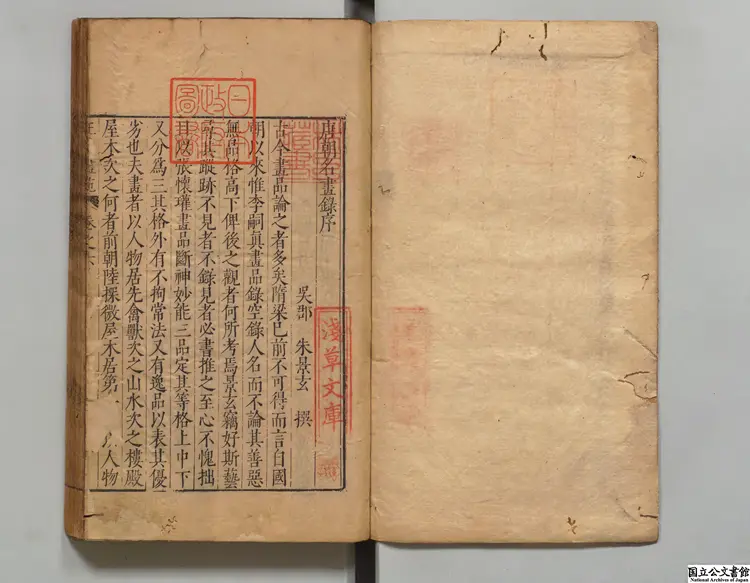 唐朝名畫錄序
吳郡 朱景玄 撰
古今畫品論之者多矣隋梁已前不可得而言自國
朝以來惟李嗣真畫品錄空錄人名而不論其善惡
無品格高下俾後之觀者何所考焉景玄竊好斯藝
尋其蹤跡不見者不錄見者必書推之至心不愧拙
目以張懷瓘畫品斷神妙能三品定其等格上中下
又分爲三其格外有不拘常法又有逸品以表其優
劣也夫畫者以人物居先禽獸次之山水次之樓殿
屋木次之何者前朝陸探微屋木居第一 人物
卷之六
淺草文庫
日本政圖
国立公文書館
National Archives of Japan